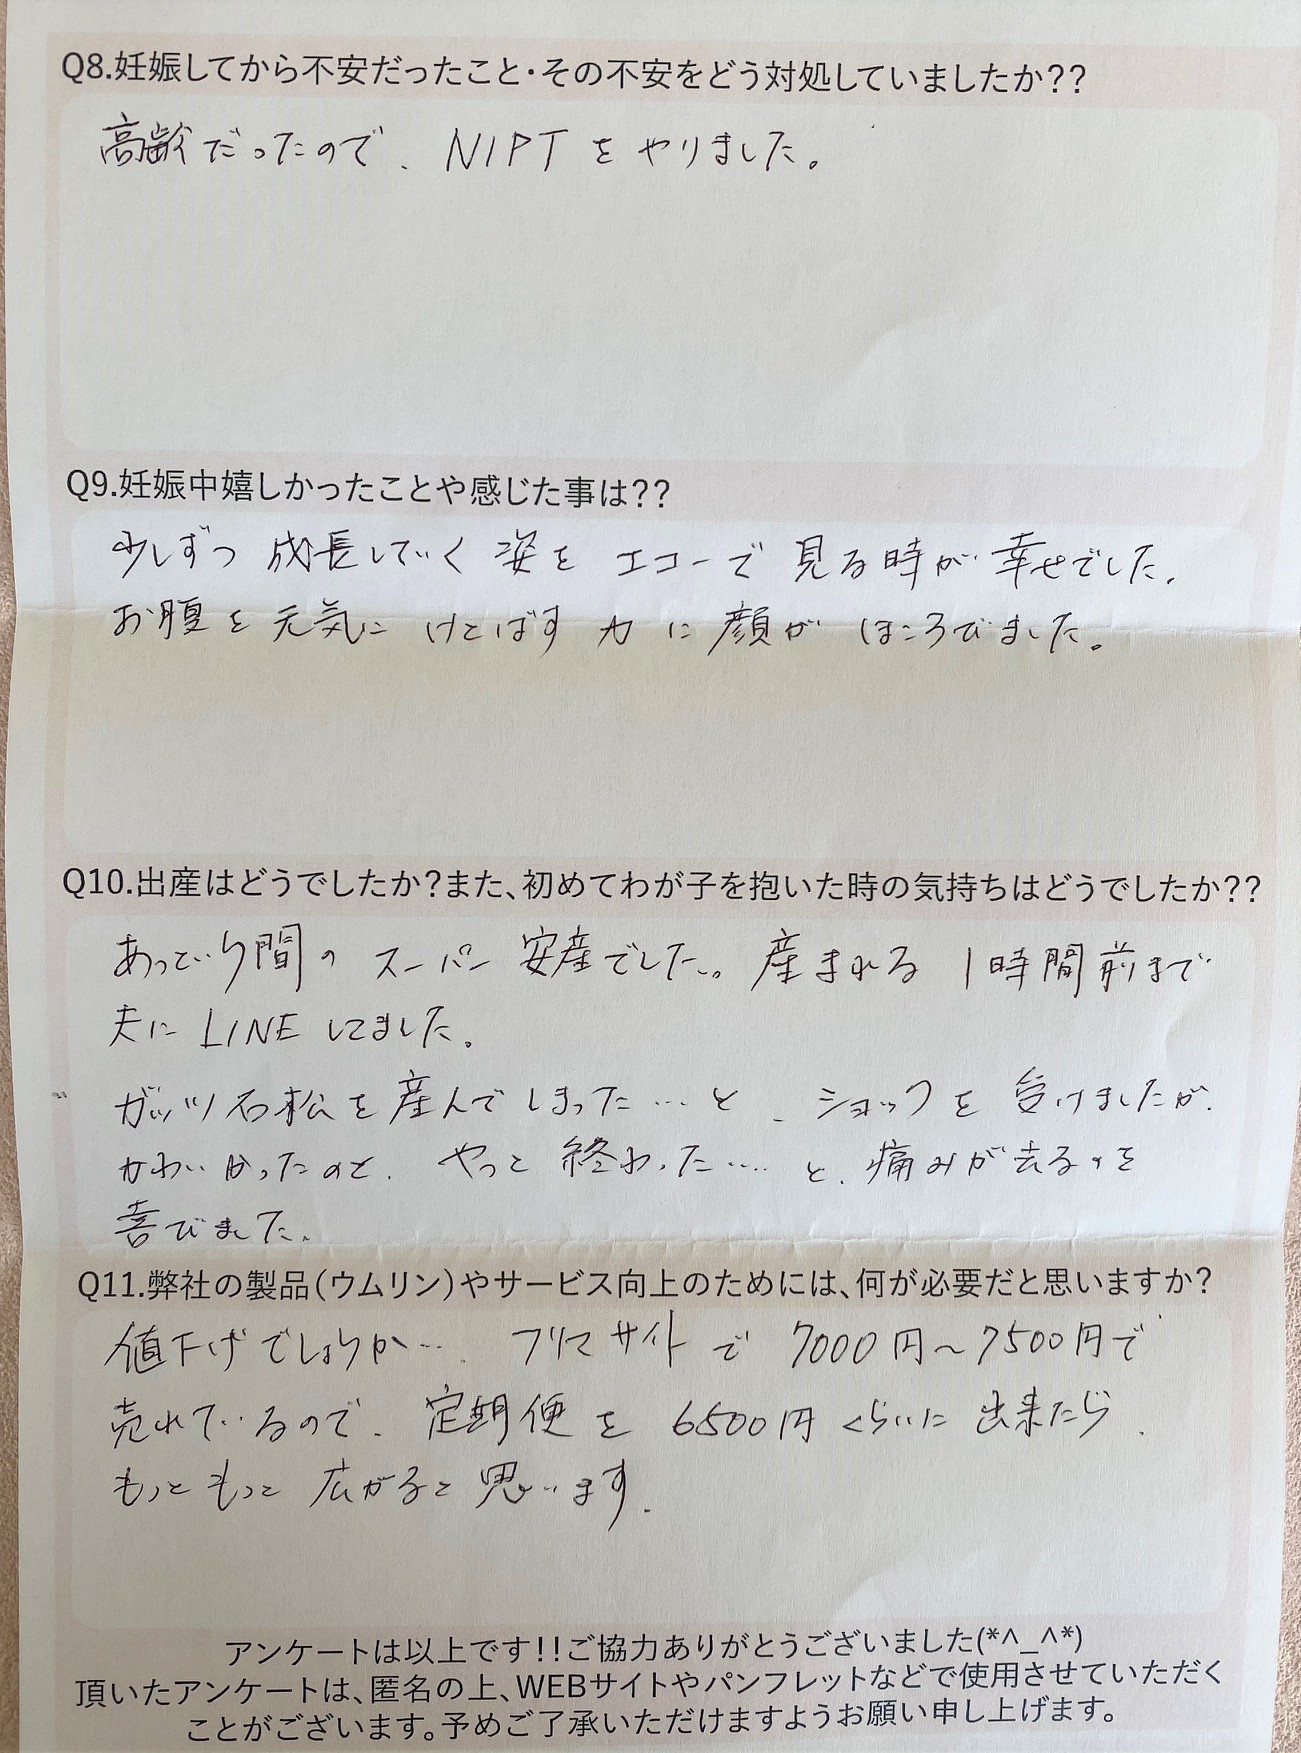 Q8.妊娠してから不安だったこと・その不安をどう対処していましたか??
高齢だったので、NIPTをやりました。
Q9.妊娠中嬉しかったことや感じた事は??
少しずつ成長していく姿をエコーで見る時が幸せでした。
お腹を元気にけとばす力に顔がほころびました。
Q10.出産はどうでしたか?また、初めてわが子を抱いた時の気持ちはどうでしたか??
あっという間のスーパー安産でした。産まれる1時間前まで
夫にLINEしてました。
ガッツ石松を産んでしまった…と、ショックを受けましたが、
かわいかったのと、やっと終わった……と、痛みが去るのを
喜びました。
Q11.弊社の製品(ウムリン)やサービス向上のためには、何が必要だと思いますか?
値下げでしょうか…。フリマサイトで7000円~7500円で
売れているので、定期便を6500円くらいに出来たら、
もっともっと広がると思います。
アンケートは以上です!!ご協力ありがとうございました(*^_^*)
頂いたアンケートは、匿名の上、WEBサイトやパンフレットなどで使用させていただく
ことがございます。予めご了承いただけますようお願い申し上げます。